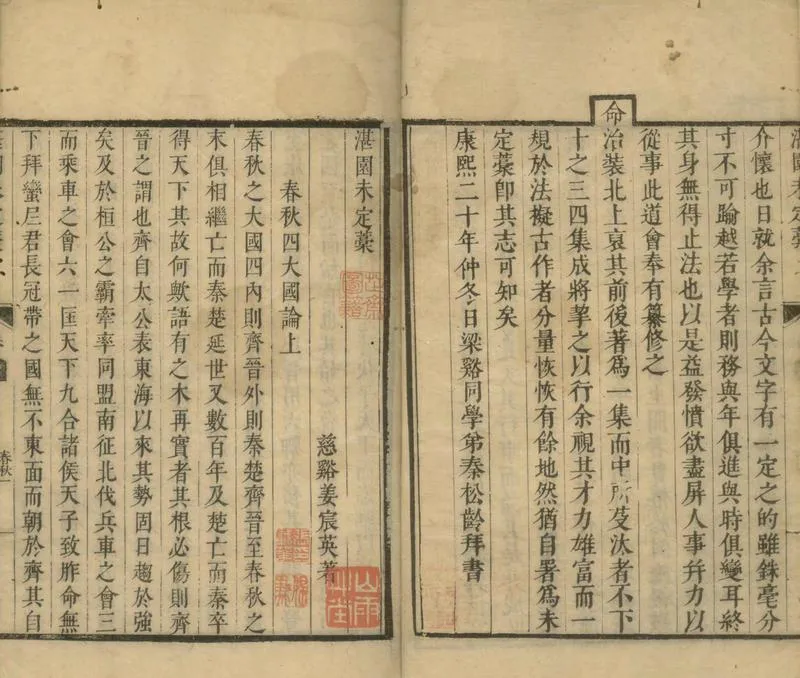 湛園未定藁
介懷也日就余言古今文字有一定之的雖銖毫分
寸不可踰越若學者則務與年俱進與時俱變耳終
其身無得止法也以是益發憤欲盡屏人事幷力以
從事此道會奉有纂修之
命治裝北上裒其前後著爲一集而中所芟汰者不下
十之三四集成將挈之以行余視其才力雄富而一
規於法擬古作者分量恢恢有餘地然猶自署爲未
定藁卽其志可知矣
康熙二十年仲冬日梁谿同學弟秦松齡拜書
湛園未定藁
慈谿姜宸英著
春秋四大國論上
春秋之大國四內則齊晉外則秦楚齊晉至春秋之
末俱相繼亡而秦楚延世又數百年及楚亡而秦卒
得天下其故何歟語有之木再實者其根必傷則齊
晉之謂也齊自太公表東海以來其勢固日趨於強
矣及於桓公之霸牽率同盟南征北伐兵車之會三
而乘車之會六一匡天下九合諸侯天子致胙命無
下拜蠻尸君長冠帶之國無不東面而朝於齊其自
春秋一